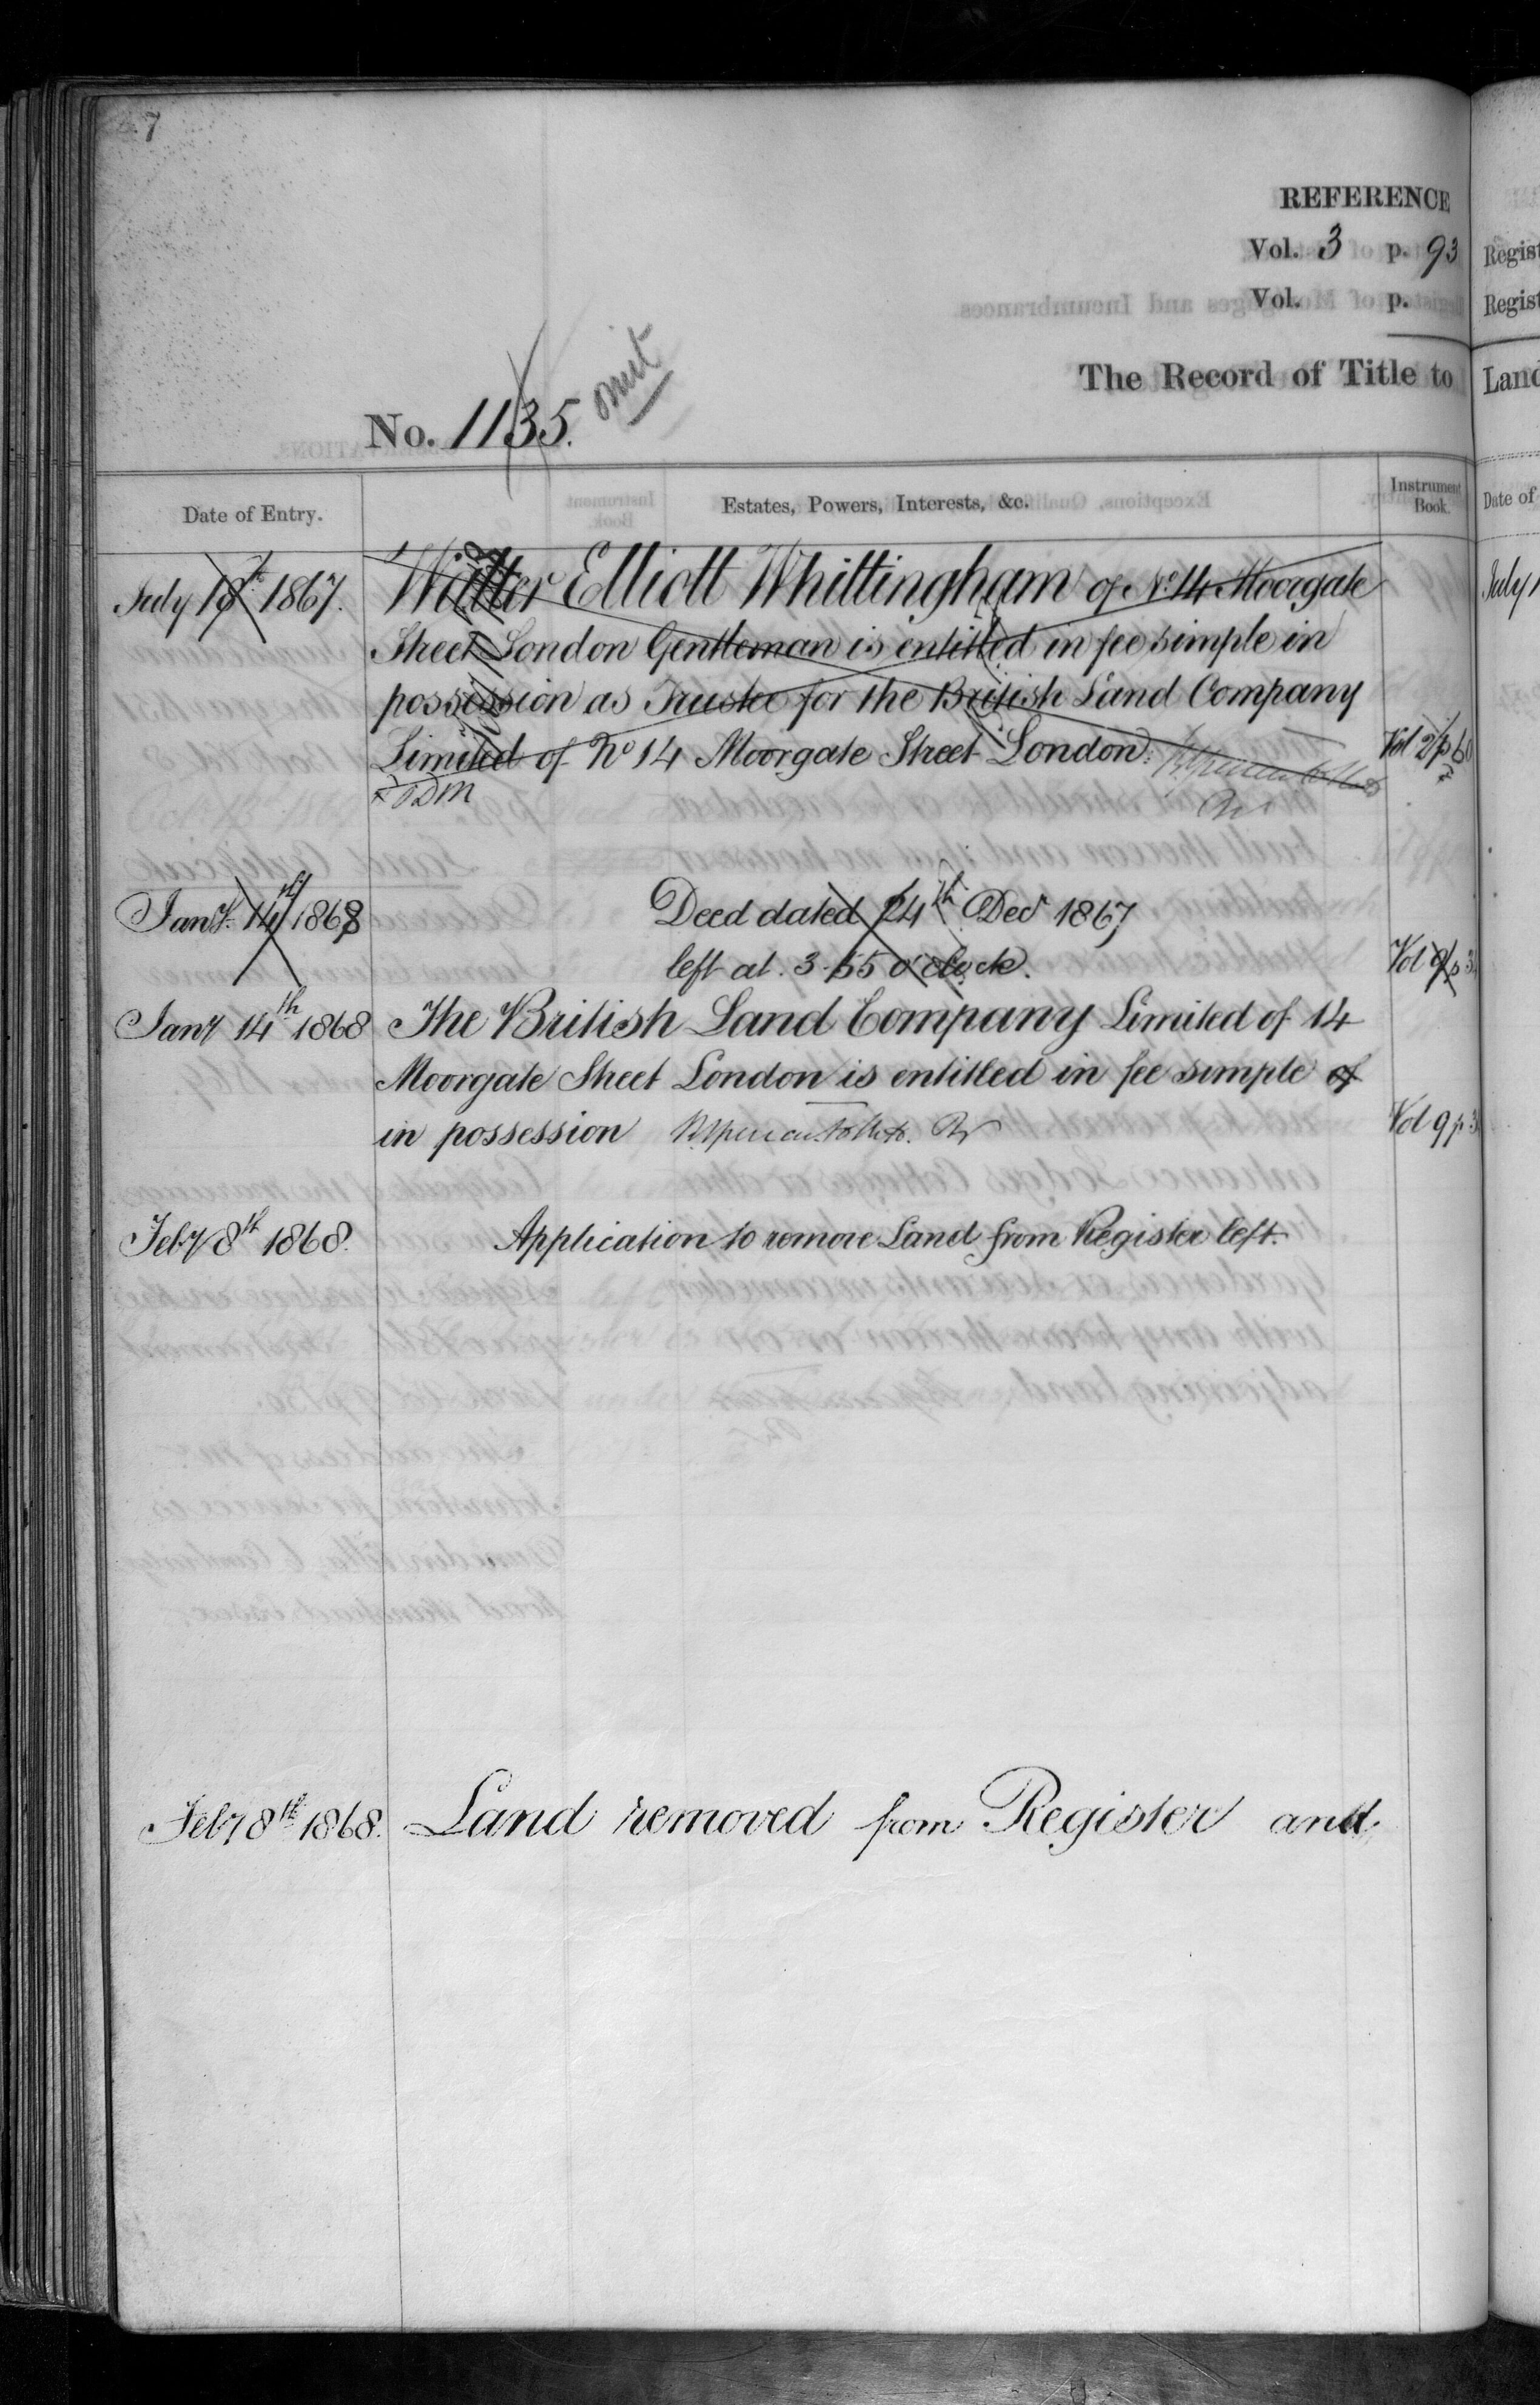 7
REFERENCE
Vol. 3 p. 93
Vol. p.
The Record of Title to
No. 1135. omit
Date of Entry. Estates, Powers, Interests, &c. Instrument Book.
July 1867. Walter Elliott Whittingham of No. 14 Moorgate
Street London Gentleman is entitled in fee simple in
possession as Trustee for the British Land Company
Limited of No 14 Moorgate Street London. Vol 2 p 60
Jany. 14th 1868 Deed dated 24th Decr 1867
left at 3.55 o'clock. Vol 9 p 3
Jany 14th 1868 The British Land Company Limited of 14
Moorgate Street London is entitled in fee simple of
in possession Vol 9 p 3
Feby 8th 1868. Application to remove Land from Register left.
Feby 8th 1868. Land removed from Register and
Regist
Regist
Land
Date of
July 1